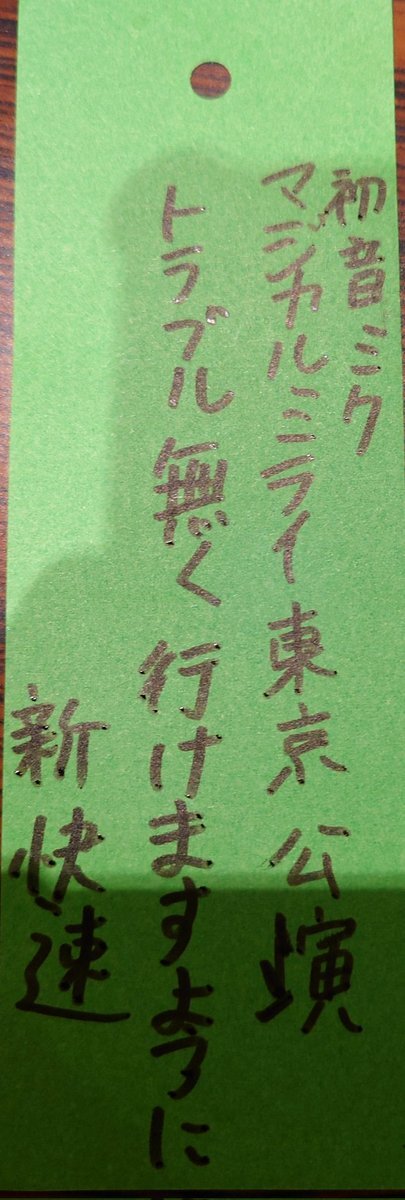 初音ミク
マジカルミライ東京公演
トラブル無く行けますように
新快速